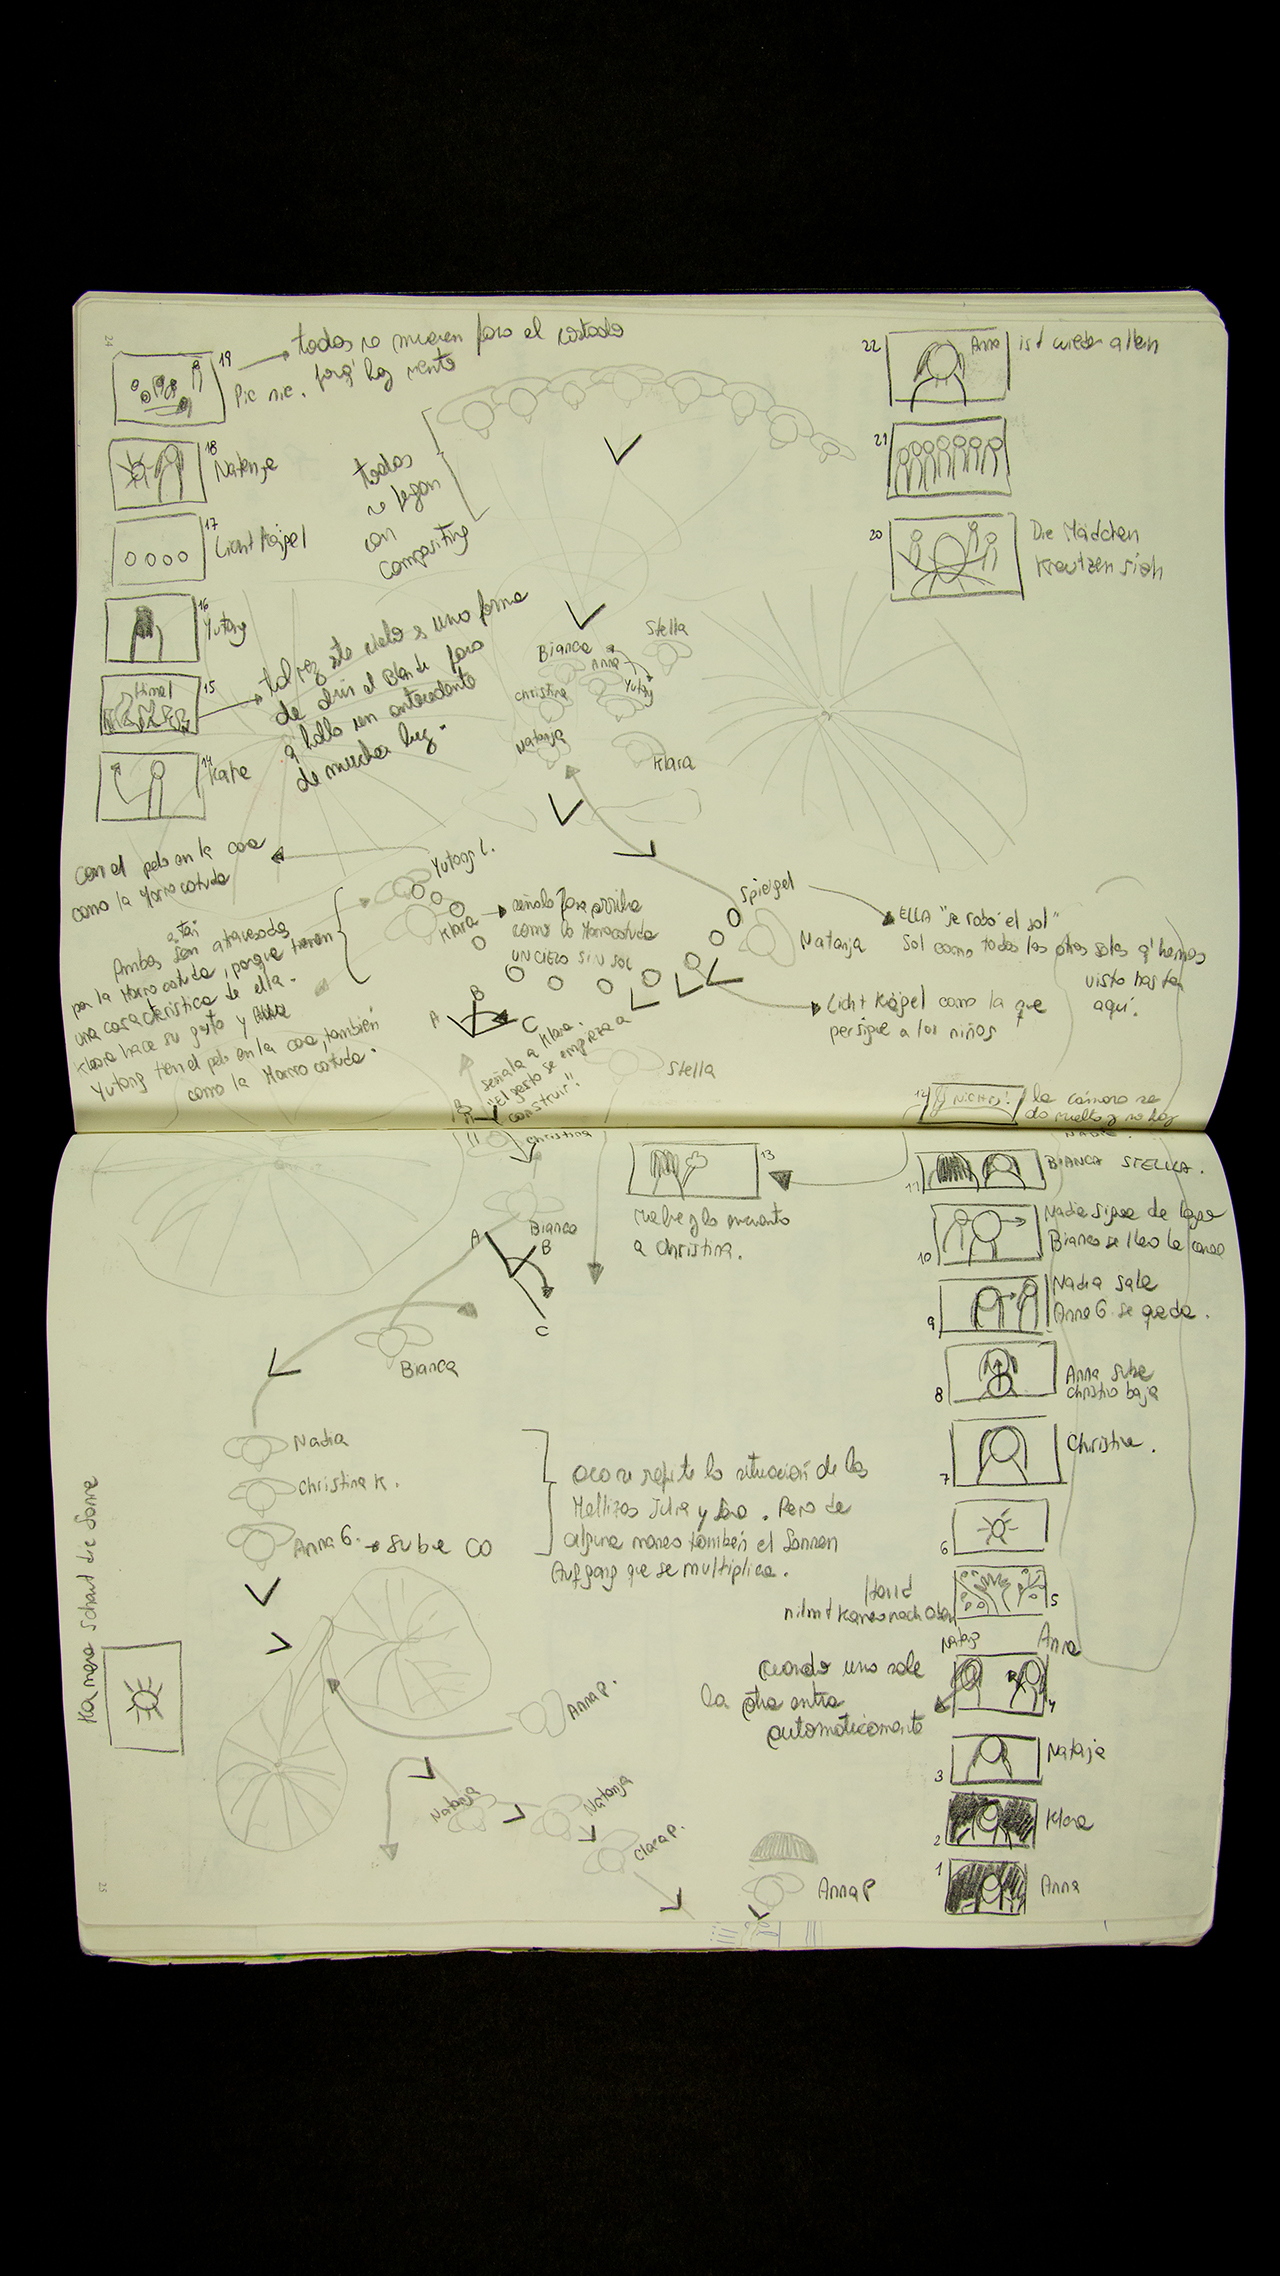 24
19
todos se mueven para el costado
porq' hay viento
Pic nic.
18
Natanja
17
Licht Kögel
16
Yutong
15
Himel
tal vez este cielo es una forma
de abrir el Blende para
q' halla un antecedente
de mucha luz.
14
Katie
todos
se pegan
con
compositing
22
Anna
ist wieder allein
21
20
Die Mädchen
kreutzen sich
Bianca
Anna
Stella
Christina
Yutong
Natanja
Klara
con el pelo en la cara
como la Morrocotuda
Yutong L.
Klara
señala para arriba
como la Morrocotuda
UN CIELO SIN SOL
Spiegel
Natanja
ELLA "se robó el sol"
Sol como todos los otros soles q' hemos
visto hasta
aquí.
Licht Kögel como la que
persigue a los niños
Ambas están atravesadas
por la Morrocotuda, porque tienen
una característica de ella.
Klara hace su gesto y
Yutong tien el pelo en la cara, también
como la Morrocotuda.
A
B
C
señala a Klara.
"El gesto se empieza a
construir".
Stella
Christina
12
NICHTS!
la cámara se
da vuelta y no hay
NADIE.
13
vuelve y lo encuentra
a Christina.
11
BIANCA STELLA.
10
Nadia sigue de largo
Bianca se lleva la cámara
9
Nadia sale
Anna G. se queda.
8
Anna sube
Christina baja
7
Christina.
6
5
Hand
nimt Kamera nach oben
Natanja
Anna
4
cuando una sale
la otra entra
automáticamente
3
Nataja
2
Klara
1
Anna
Bianca
A
B
C
Bianca
Nadia
Christina K.
Anna G. → sube CO
acá se repite la situación de las
Mellizas Julia y Lara. Pero de
alguna manera también el Sonnen
Aufgang que se multiplica.
Kamera schaut die Sonne
Anna P.
Natanja
Natanja
Clara P.
Anna P
25